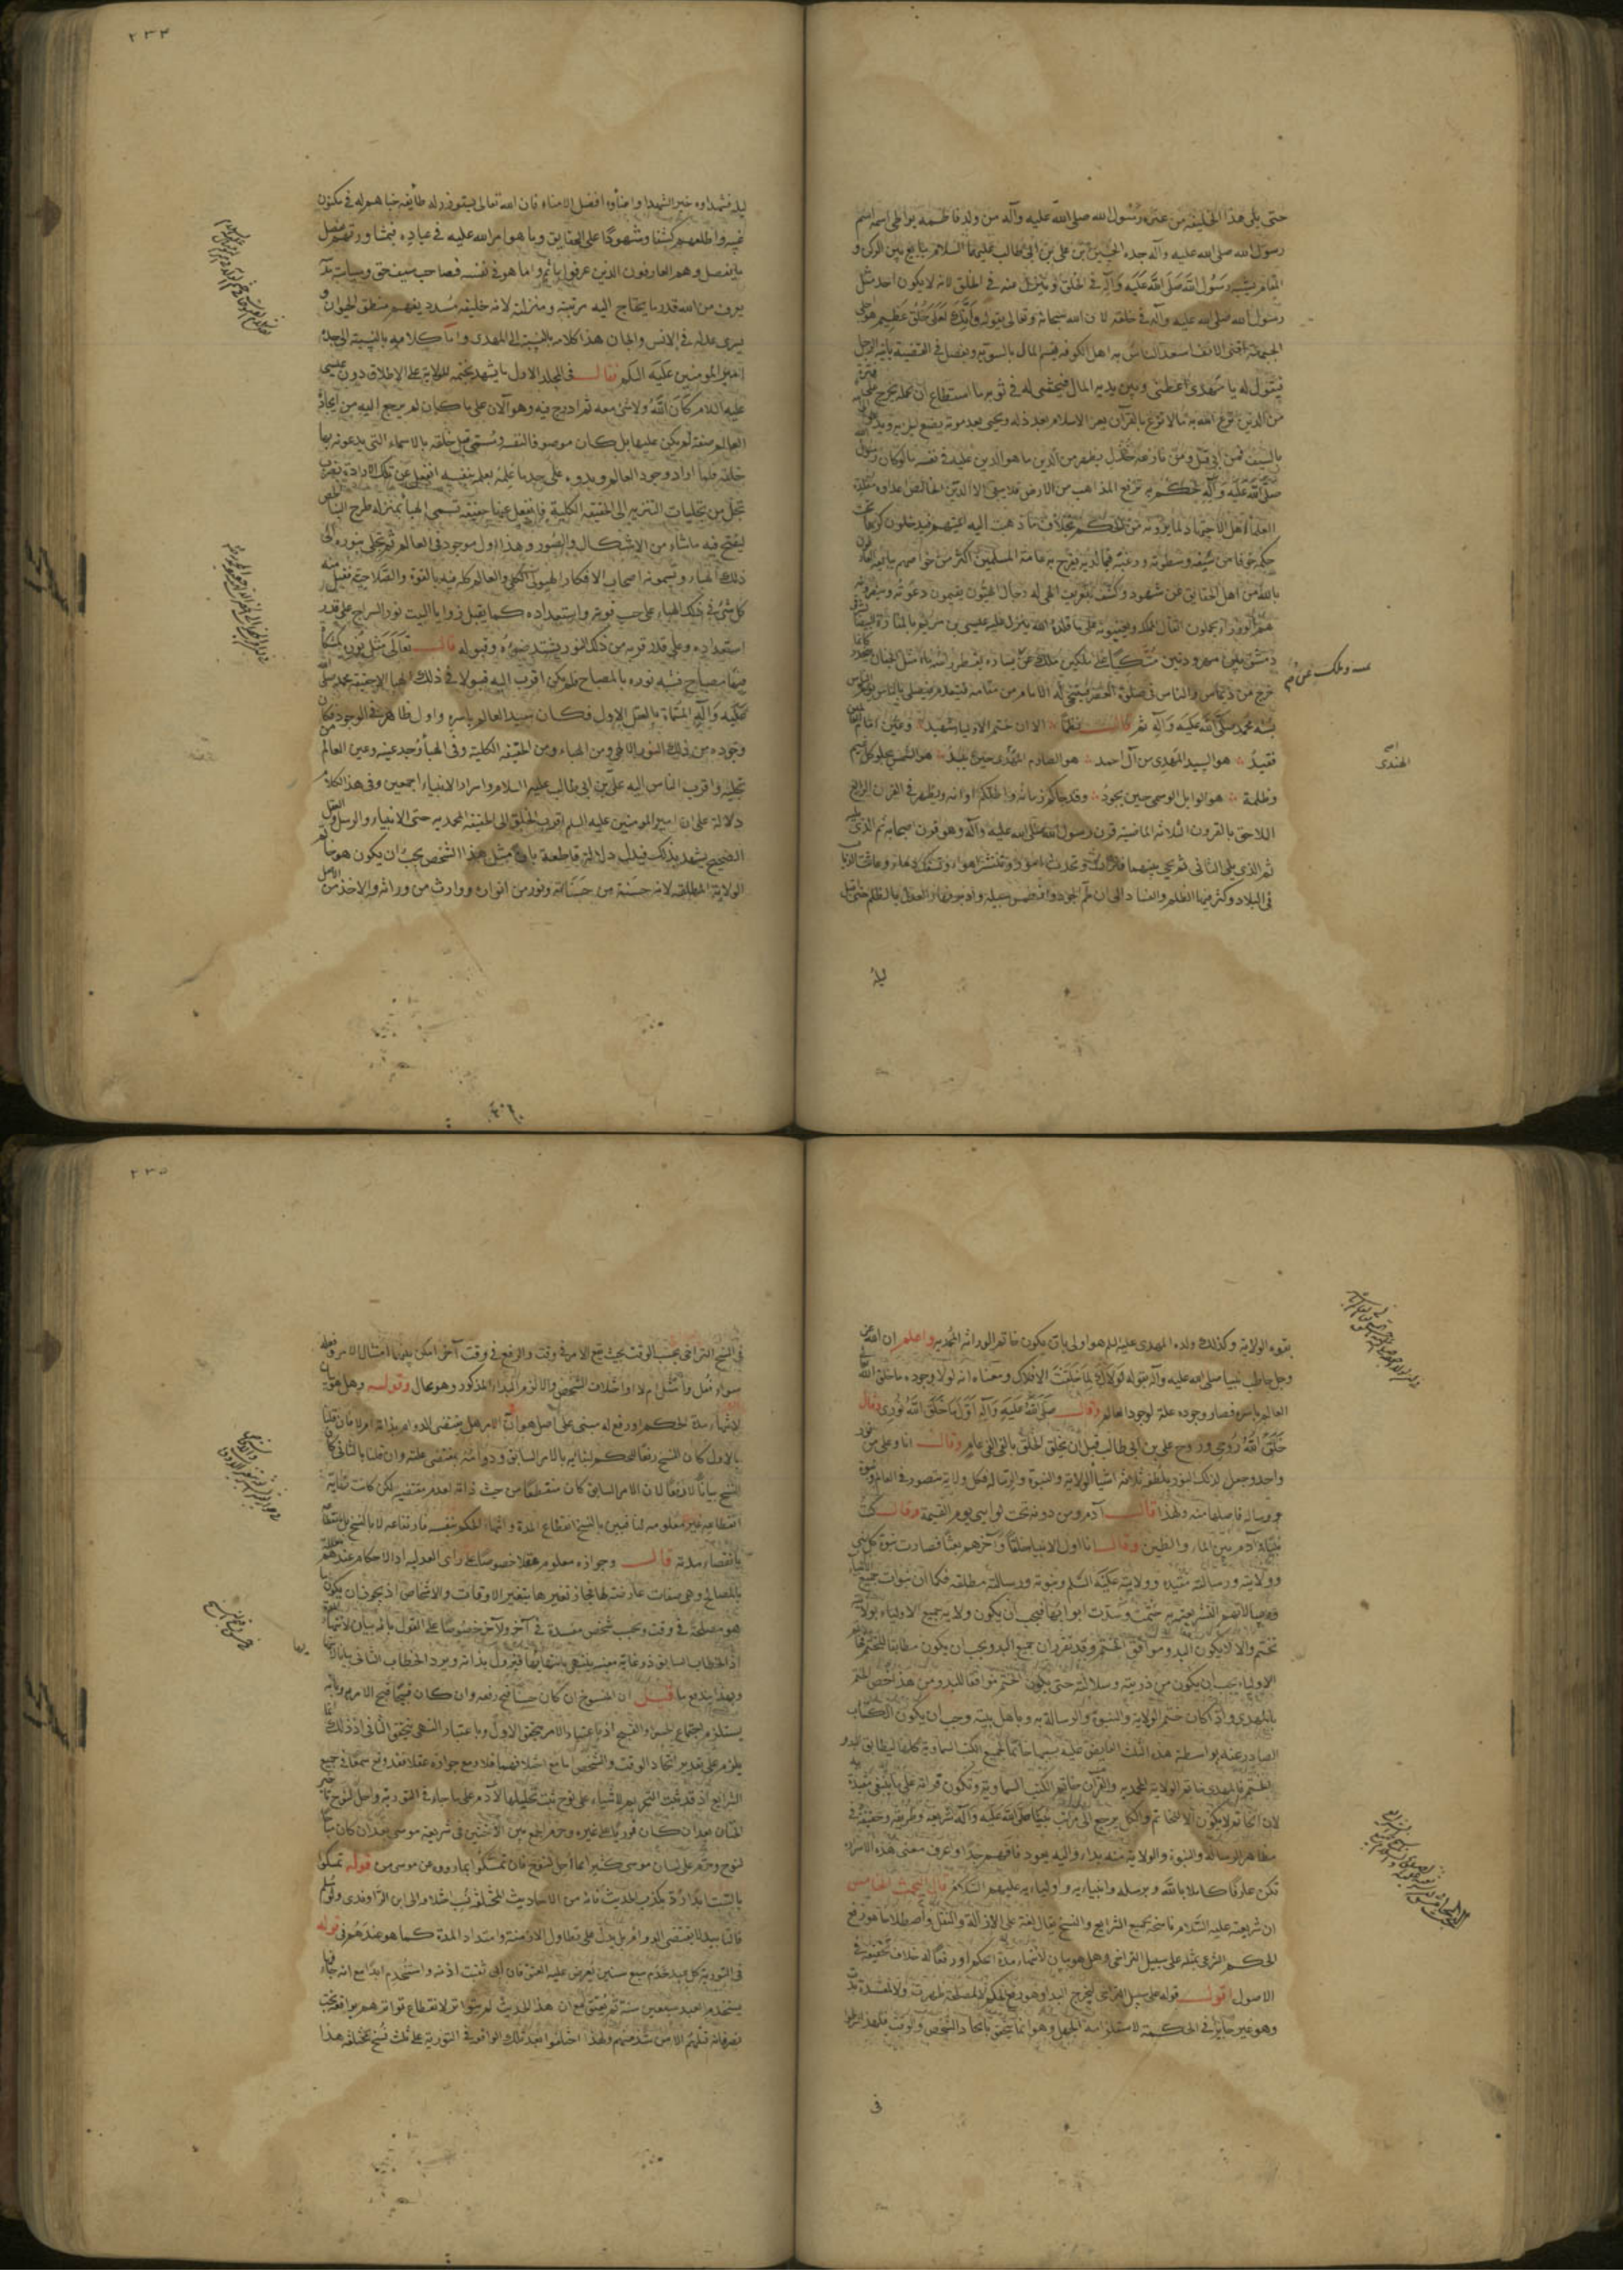 حتى يلي هذا الخليفة من عترة رسول الله صلى الله عليه وآله من ولد فاطمة يواطي اسمه اسم
رسول الله صلى الله عليه وآله جده الحسين بن علي بن ابي طالب عليهما السلام يبايع بين الركن و
المقام يشبه رسول الله صلى الله عليه وآله في الخلق وينزل عنه في الخلق لانه لا يكون احد مثل
رسول الله صلى الله عليه وآله في خلقه لان الله سبحانه وتعالى يقول وانك لعلى خلق عظيم هو اجلى
الجبهة اقنى الانف اسعد الناس به اهل الكوفة يقسم المال بالسوية ويفصل في القضية ياتيه الرجل
فيقول له يا مهدي اعطني وبين يديه المال فيحثى له في ثوبه ما استطاع ان يحمله يخرج على فترة
من الدين يزع الله به ما لا يزع بالقرآن يعز الاسلام بعد ذله ويحيى بعد موته يضع
بالسيف فمن ابى قتل ومن نازعه خذل يظهر من الدين ما هو الدين عليه في نفسه ما لو كان رسول
صلى الله عليه وآله لحكم به يرفع المذاهب من الارض فلا يبقى الا الدين الخالص اعداوه مقلدة
العلماء اهل الاجتهاد لما يرونه من الحكم بخلاف ما ذهبت اليه ائمتهم فيدخلون كرها تحت
حكمه خوفا من سيفه وسطوته ورغبة فيما لديه يفرح به عامة المسلمين اكثر من خواصهم يبايعه العارفون
بالله من اهل الحقايق عن شهود وكشف بتعريف الهي له رجال الهيون يقيمون دعوته وينصرونه
هم الوزراء يحملون اثقال المملكة ويعينونه على ما قلده الله ينزل عليه عيسى بن مريم بالمنارة البيضاء شرقي
دمشق بين مهرودتين متكئا على ملكين ملك عن يساره يقطر راسه ماء مثل الجمان
خرج من ديماس والناس في صلوة العصر فيتنحى له الامام من مقامه فيتقدم فيصلي بالناس يوم الناس
بسنة محمد صلى الله عليه وآله ثم قال نظما الا ان ختم الاولياء شهيد وعين امام العالمين
فقيد هو السيد المهدي من آل احمد هو الصارم الهندي حين يبيد هو الشمس يجلو كل غيم
وظلمة هو الوابل الوسمي حين يجود وقد جاكم زمانه واظلكم اوانه وظهر في القرن الرابع
اللاحق بالقرون الثلاثة الماضية قرن رسول الله صلى الله عليه وآله وهو قرن اصحابه ثم الذي يليه
ثم الذي يلي الثاني ثم يجي بينهما فترات وتحدث امور وتنتشر اهواء وتسفك دماء وعاثت الذئاب
في البلاد وكثر فيها الظلم والفساد الى ان طم الجور وطمس سبيله وادبر نهار العدل بالظلم حتى اقبل
ليله
وملك عن
الهندي
٢٣٤
ليله فشهداوه خير الشهدا وامناوه افضل الامناء فان الله تعالى يستوزر له طايفة خباهم له في مكنون
غيبه واطلعهم كشفا وشهودا على الحقايق وما هو امر الله عليه في عباده فبمشاورتهم يفصل
ما يفصل وهم العارفون الذين عرفوا ما ثم واما هو في نفسه فصاحب سيف حق وسياسة مدنية
يعرف من الله قدر ما يحتاج اليه مرتبته ومنزلته لانه خليفة مسدد يفهم منطق الحيوان و
يسري عدله في الانس والجان هذا كلامه بالنسبة الى المهدي واما كلامه بالنسبة الى جده
امير المومنين عليه السلم فقال في المجلد الاول ما يشهد بختمه للولاية على الاطلاق دون عيسى
عليه السلام كان الله ولا شي معه ثم ادرج فيه وهو الآن على ما كان لم يرجع اليه من ايجاده
العالم صفة لم يكن عليها بل كان موصوفا لنفسه ومسمى قبل خلقه بالاسماء التي يدعونه بها
خلقه فلما اراد وجود العالم وبدوه على حد ما علمه بعلمه بنفسه انفعل عن تلك الارادة بضرب
تجل من تجليات التنزيه الى الحقيقة الكلية فانفعل عنها حقيقة تسمى الهباء بمنزلة طرح البناء الجص
ليفتح فيه ما شاء من الاشكال والصور وهذا اول موجود في العالم ثم تجلى بنوره الى
ذلك الهباء ويسمونه اصحاب الافكار الهيولى الكلي والعالم كله فيه بالقوة والصلاحية فقبل منه
كل شي في ذلك الهباء على حسب قوته واستعداده كما يقبل زوايا البيت نور السراج على قدر
استعداده وعلى قدر قربه من ذلك النور يشتد ضوءه وقبوله قال تعالى مثل نوره كمشكاة
فيها مصباح فشبه نوره بالمصباح فلم يكن اقرب اليه قبولا في ذلك الهبا الا حقيقة محمد صلى الله
عليه وآله المسماة بالعقل الاول فكان سيد العالم باسره واول ظاهر في الوجود فكان
وجوده من ذلك النور الالهي ومن الهباء ومن الحقيقة الكلية وفي الهبا وجد عينه وعين العالم
تجليه واقرب الناس اليه علي بن ابي طالب عليه السلام واسرار الانبياء اجمعين وفي هذا الكلام
دلالة على ان امير المومنين عليه السلم اقرب الخلق الى الحقيقة المحمدية حتى الانبياء والرسل والعقل
الصحيح يشهد بذلك فيدل دلالة قاطعة بان مثل هذا الشخص يجب ان يكون هو خاتم
الولاية المطلقة لانه حسنة من حسناته ونور من انواره ووارث من وراثه والاخذ من الاصل
بقوه الولاية وكذلك ولده المهدي عليه السلم هو اولى بان يكون خاتم الوراثة المحمدية واعلم ان الله عز
وجل خاطب نبينا صلى الله عليه وآله بقوله لولاك لما خلقت الافلاك ومعناه انه لولا وجوده ما خلق الله
العالم باسره فصار وجوده علة لوجود العالم وقال صلى الله عليه وآله اول ما خلق الله نوري وقال
خلق الله روحي وروح علي بن ابي طالب قبل ان يخلق الخلق بالفي الفي عام وقال انا وعلي من نور
واحد وجعل لذلك النور يلطفه ثلاثة اشيا الولاية والنبوة والرسالة فكل ولاية متصور في العالم ونبوة
ورسالة فاصلها منه ولهذا قال آدم ومن دونه تحت لواي يوم القيمة وقال كنت
نبيا وآدم بين الماء والطين وقال انا اول الانبيا خلقا وآخرهم بعثا فصارت نبوة كل نبي
وولايته ورسالته مقيدة وولايته عليه السلم ونبوته ورسالته مطلقة فكما ان نبوات جميع الانبياء
ورسالاتهم التشريعية به ختمت وسدت ابوابها فيجب ان يكون ولاية جميع الاولياء بولايته
تختم والا لا يكون البدو موافق الختم وقد تقرر ان جميع البدو يجب ان يكون مطابقا للختم فخاتم
الاولياء يجب ان يكون من ذريته وسلالته حتى يكون الختم موافقا للبدو ومن هذا خص الختم
بالمهدي واذا كان ختم الولاية والنبوة والرسالة به وباهل بيته وجب ان يكون الكتاب
الصادر عنه بواسطة هذه الثلث الفايض عليه بسببها خاتما لجميع الكتب السماوية كلها ليطابق البدو
الختم فالمهدي خاتم الولاية المحمدية والقرآن خاتم الكتب السماوية
لان الخاتم لا يكون الا لخاتم والكل يرجع الى مراتب نبينا صلى الله عليه وآله شريعة وطريقة وحقيقة في
مظاهر الرسالة والنبوة والولاية منه بداء واليه يعود فافهم جدا واعرف معنى هذه الاسرار
تكن عارفا كاملا بالله وبرسله وانبيايه واوليايه عليهم السلام قال البحث الخامس
ان شريعته عليه السلام ناسخة لجميع الشرايع والنسخ يقال لغة على الازالة والنقل واصطلاحا هو رفع
الحكم الشرعي بمثله على سبيل التراخي وهل هو بيان لانتهاء مدة الحكم او رفعا له خلاف تحقيقه في
الاصول اقول قوله على سبيل التراخي ليخرج البداء وهو رفع الحكم لمصلحة ظهرت او لمفسدة بدت
وهو غير جايز في الحكمة لاستلزامه الجهل وهو انما يتحقق باتحاد الشخص والوقت فلهذا اشترط
في
٢٣٥
في النسخ التراخي بحسب الوقت بحيث يقع الامر في وقت والرفع في وقت آخر امكن فيهما امتثال الامر وفعله
سواء فعل وامتثل ام لا او اختلاف الشخص والا لزم البداء المذكور وهو محال وقوله وهل هو بيان
لانتهاء مدة الحكم او رفع له مبني على اصل هو ان الامر هل يقتضي الدوام بذاته ام لا فان قلنا
بالاول كان النسخ رفعا للحكم لبقايه بالامر السابق ودوامه بمقتضى علته وان قلنا بالثاني كان
النسخ بيانا لا رفعا لان الامر السابق كان منقطعا من حيث ذاته لعدم مقتضيه لكن كانت غاية
انقطاعه غير معلومة لنا فبين بالنسخ انقطاع المدة وانتهاء الحكم بنفسه فارتفاعه لا بالنسخ بل
بانقضاء مدته قال وجوازه معلوم عقلا خصوصا على راي العدلية اذ الاحكام عندهم معللة
بالمصالح وهي صفات عارضة لها فجاز تغيرها بتغير الاوقات والاشخاص اذ يجوز ان يكون ما
هو مصلحة في وقت وبحسب شخص مفسدة في آخر ولآخر خصوصا على القول بانه بيان لانتهاء المدة
اذ الخطاب السابق ذو غاية معينة ينتهي بانتهايها فيزول بذاته ويرد الخطاب الثاني
وبهذا يندفع ما قيل ان المنسوخ ان كان حسنا قبح رفعه وان كان قبيحا قبح الامر به وبانه
يستلزم اجتماع الحسن والقبح اذ باعتبار الامر يتحقق الاول وباعتبار النهي يتحقق الثاني اذ ذلك انما
يلزم على تقدير اتحاد الوقت والشخص اما مع اختلافهما فلا ومع جوازه عقلا فقد وقع سمعا في جميع
الشرايع اذ قد ثبت التحريم لاشياء على نوح ثبت تحليلها لآدم على ما جاء في التورية واحل لنوح تاخير
الختان بعد ان كان فوريا على غيره وحرم الجمع بين الاختين في شريعة موسى بعد ان كان مباحا
لنوح وحرم على لسان موسى كثير مما احل لنوح فان تمسكوا بما رووه عن موسى من قوله تمسكوا
بالسبت ابدا رد بكذب الحديث فانه من الاحاديث المختلقة نسب اختلاقه الى ابن الراوندي ولو سلم
فالتابيد لا يقتضي الدوام بل يدل على تطاول الازمنة وامتداد المدة كما هو عندهم في قوله
في التورية كل عبد خدم سبع سنين يعرض عليه العتق فان ابى ثقبت اذنه واستخدم ابدا مع انه جاء فيها
يستخدم العبد سبعين سنة ثم يعتق مع ان هذا الحديث لم يتواتر لانقطاع تواترهم بواقعة بخت
نصر فانه قتلهم الا من شذ منهم ولهذا اختلفوا بعد تلك الواقعة في التورية على ثلث نسخ مختلفة هذا